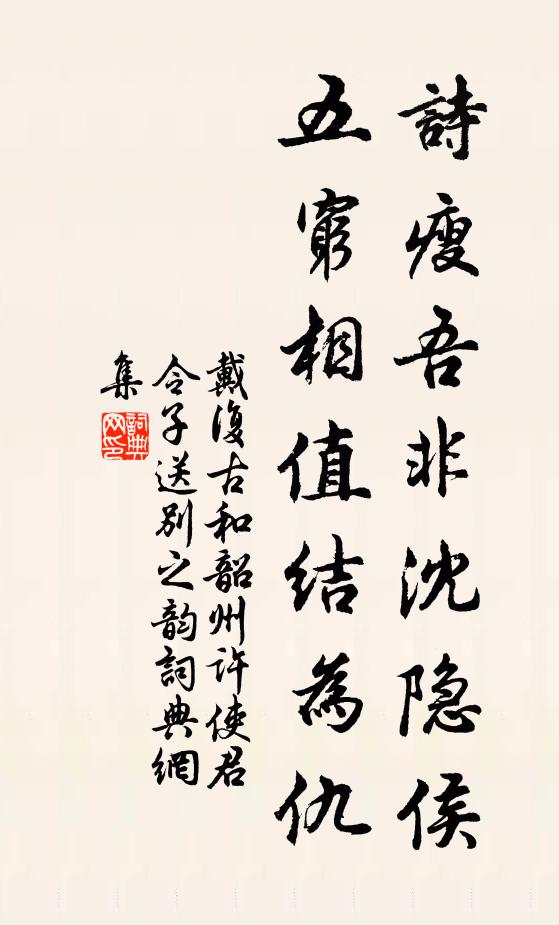 詩瘦吾非沈隐侯
五窮相值結為仇
戴復古和韶州許使君
令子送別之韵詞典網
集
詞典
网印